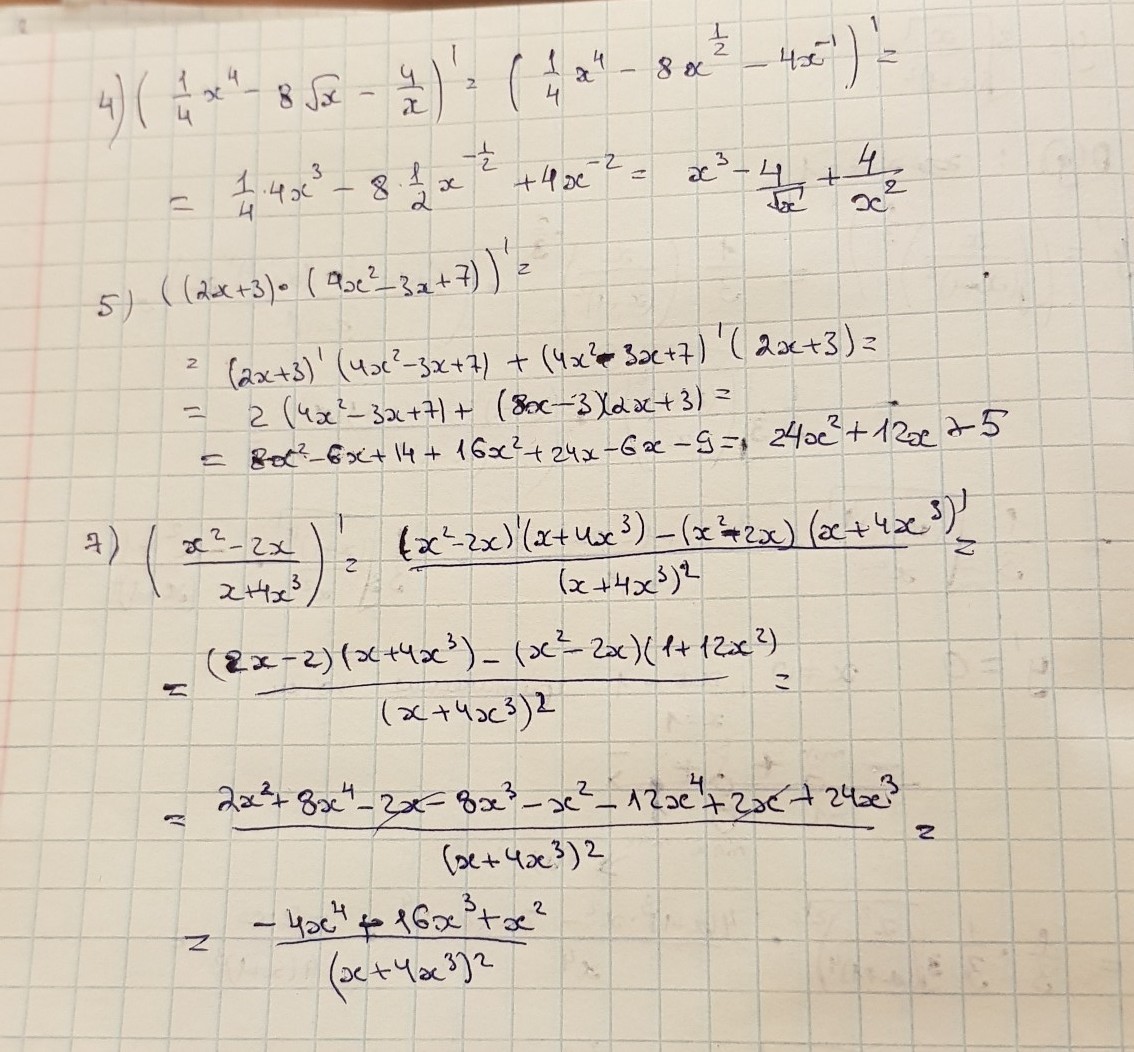 4) (1/4 x⁴ - 8√x - 4/x)' = (1/4 x⁴ - 8x^(1/2) - 4x⁻¹)' =
= 1/4 · 4x³ - 8 · 1/2 x^(-1/2) + 4x⁻² = x³ - 4/√x + 4/x²
5) ((2x+3)·(4x²-3x+7))' =
= (2x+3)'(4x²-3x+7) + (4x²-3x+7)'(2x+3) =
= 2(4x²-3x+7) + (8x-3)(2x+3) =
= 8x²-6x+14+16x²+24x-6x-9 = 24x²+12x+5
7) ((x²-2x)/(x+4x³))' = ((x²-2x)'(x+4x³) - (x²-2x)(x+4x³)')/(x+4x³)² =
= ((2x-2)(x+4x³) - (x²-2x)(1+12x²))/(x+4x³)² =
= (2x²+8x⁴-2x-8x³-x²-12x⁴+2x+24x³)/(x+4x³)² =
= (-4x⁴+16x³+x²)/(x+4x³)²